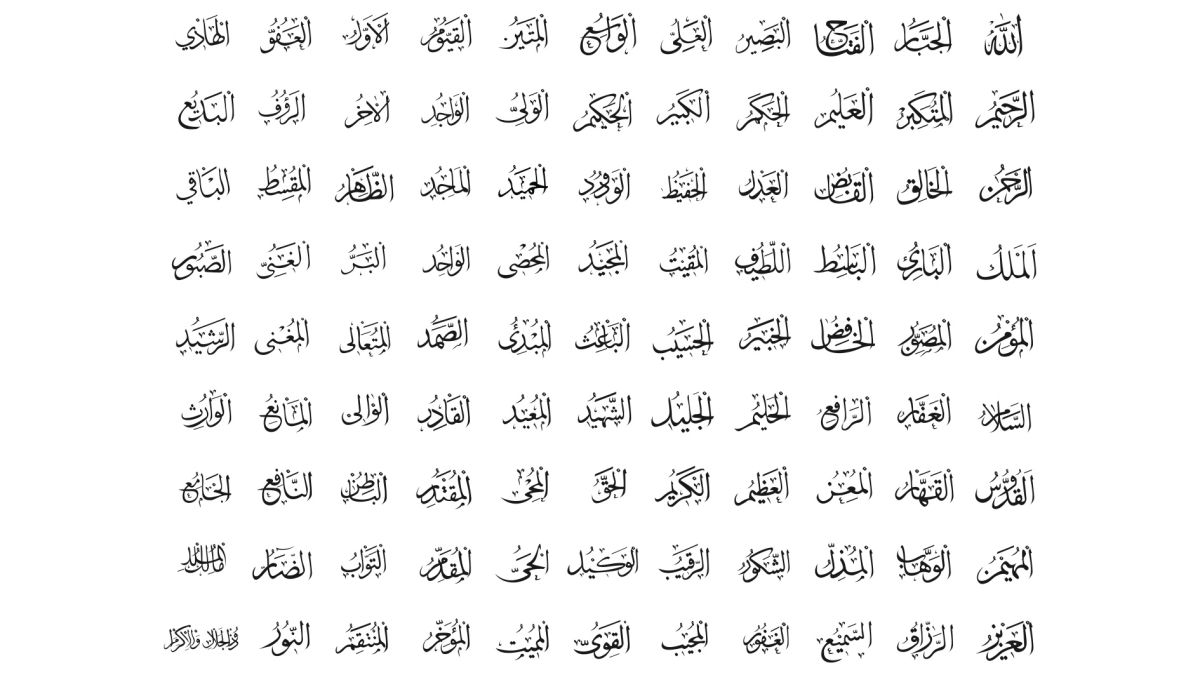 الله الجبار الفتاح البصير العلي الواسع المتين القيوم الأول العفو الهادي
الرحيم المتكبر العليم الحكم الكبير الحكيم الولي الواجد الآخر الرؤف البديع
الرحمن الخالق القابض العدل الحفيظ الودود الحميد الماجد الظاهر المقسط الباقي
الملك البارئ الباسط اللطيف المقيت المجيد المحصي الواحد البر الغني الصبور
المؤمن المصور الخافض الخبير الحسيب الباعث المبدئ الصمد المتعالى المغني الرشيد
السلام الغفار الرافع الحليم الجليل الشهيد المعيد القادر الوالي المانع الوارث
القدوس القهار المعز العظيم الكريم الحق المحي المقتدر الباطن النافع الجامع
المهيمن الوهاب المذل الشكور الرقيب الوكيل الحي المقدم التواب الضار مالك الملك
العزيز الرزاق السميع الغفور المجيب القوي المميت المؤخر المنتقم النور ذو الجلال والاكرام